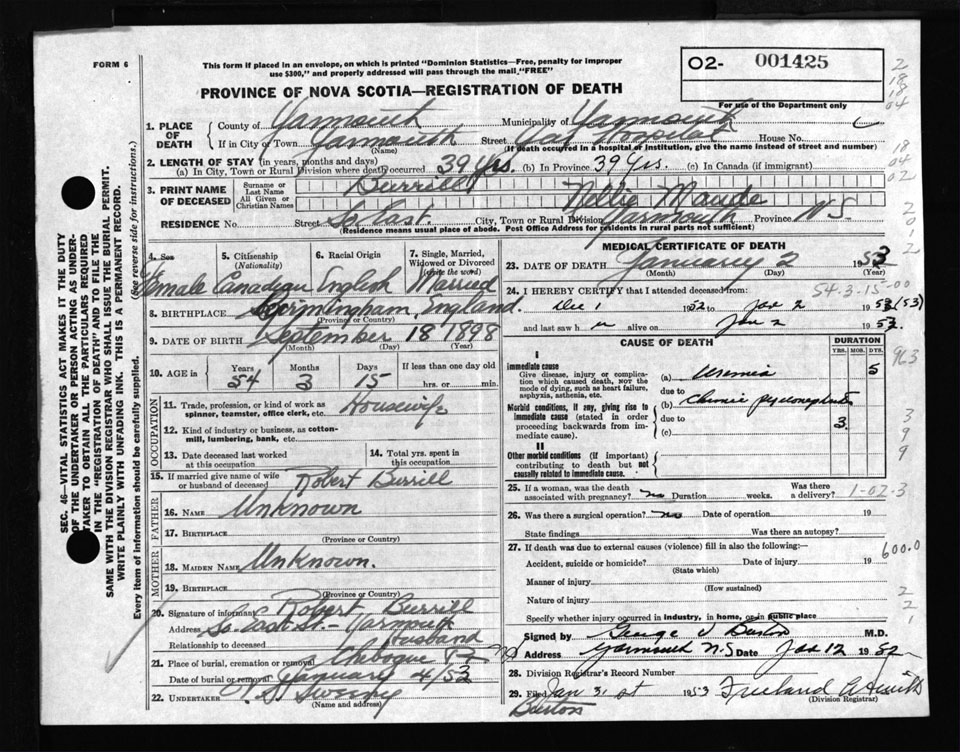 FORM 6
This form if placed in an envelope, on which is printed "Dominion Statistics—Free, penalty for improper
use $300," and properly addressed will pass through the mail "FREE"
O2- 001425
For use of the Department only
PROVINCE OF NOVA SCOTIA—REGISTRATION OF DEATH
1. PLACE OF DEATH
County of Yarmouth Municipality of Yarmouth
If in City or Town Yarmouth Street Yar Hospital House No.
(Name) (If death occurred in a hospital or institution, give the name instead of street and number)
2. LENGTH OF STAY (in years, months and days)
(a) In City, Town or Rural Division where death occurred 39 Yrs. (b) In Province 39 Yrs. (c) In Canada (if immigrant)
3. PRINT NAME OF DECEASED
Surname or Last Name Burrill
All Given or Christian Names Nellie Maude
RESIDENCE No. Street So. East. City, Town or Rural Division Yarmouth Province N.S.
(Residence means usual place of abode. Post Office Address for residents in rural parts not sufficient)
4. Sex 5. Citizenship (Nationality) 6. Racial Origin 7. Single, Married, Widowed or Divorced (write the word)
Female Canadian English Married
8. BIRTHPLACE Birmingham, England
(Province or Country)
9. DATE OF BIRTH September 18 1898
(Month) (Day) (Year)
10. AGE in Years Months Days If less than one day old
54 3 15 hrs. or min.
OCCUPATION
11. Trade, profession, or kind of work as spinner, teamster, office clerk, etc. Housewife
12. Kind of industry or business, as cotton-mill, lumbering, bank, etc.
13. Date deceased last worked at this occupation
14. Total yrs. spent in this occupation
15. If married give name of wife or husband of deceased Robert Burrill
FATHER
16. NAME Unknown
17. BIRTHPLACE
(Province or Country)
MOTHER
18. MAIDEN NAME Unknown.
19. BIRTHPLACE
(Province or Country)
20. Signature of informant Robert Burrill
Address So. East St. - Yarmouth
Relationship to deceased Husband
21. Place of burial, cremation or removal Chebogue
Date of burial or removal January 4/53
22. UNDERTAKER Sweeny
(Name and address)
MEDICAL CERTIFICATE OF DEATH
23. DATE OF DEATH January 2 1953
(Month) (Day) (Year)
24. I HEREBY CERTIFY that I attended deceased from: 54-3-15-00
Dec 1 1952 to Jan 2 1953 (53)
and last saw h alive on Jan 2 1953.
CAUSE OF DEATH DURATION
YRS. MOS. DYS.
I
Immediate cause
Give disease, injury or complication which caused death, NOT the mode of dying, such as heart failure, asphyxia, asthenia, etc.
(a) Uremia 5
due to
Morbid conditions, if any, giving rise to immediate cause (stated in order proceeding backwards from immediate cause).
(b) Chronic pyelonephritis
due to 3.
(c)
II
Other morbid conditions (if important) contributing to death but not causally related to immediate cause.
25. If a woman, was the death associated with pregnancy? no Duration weeks. Was there a delivery? 1-02-3
26. Was there a surgical operation? no Date of operation 19
State findings Was there an autopsy?
27. If death was due to external causes (violence) fill in also the following:—
Accident, suicide or homicide? Date of injury 19 600.0
(State which)
Manner of injury
(How sustained)
Nature of injury
Specify whether injury occurred in industry, in home, or in public place
Signed by George V Burton M.D.
Address Yarmouth N.S Date Jan 12 19
28. Division Registrar's Record Number
29. Filed Jan 31st 1953 Freeland
(Division Registrar)
Burton
SEC. 46—VITAL STATISTICS ACT MAKES IT THE DUTY
OF THE UNDERTAKER OR PERSON ACTING AS UNDERTAKER
TO OBTAIN ALL THE PARTICULARS REQUIRED
IN THE "REGISTRATION OF DEATH" AND TO FILE THE
SAME WITH THE DIVISION REGISTRAR WHO SHALL ISSUE THE BURIAL PERMIT.
WRITE PLAINLY WITH UNFADING INK. THIS IS A PERMANENT RECORD.
Every item of information should be carefully supplied. (See reverse side for instructions.)